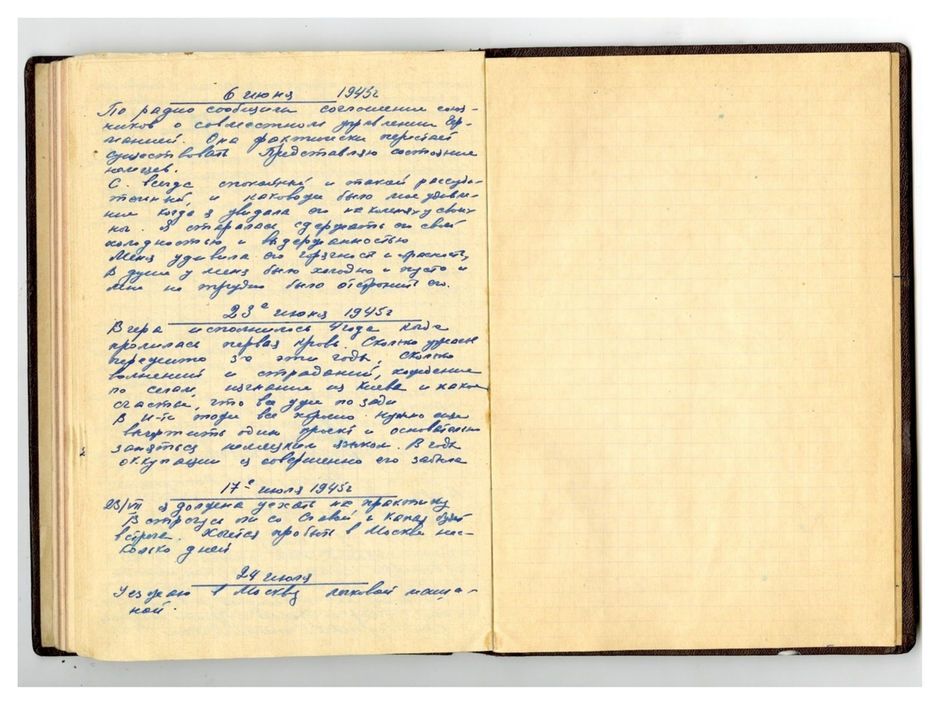 6 июня 1945г
По радио сообщили соглашение союз-
ников о совместном управлении Гер-
манией. Она фактически перестаёт
существовать Представляю состояние
немцев.
С. всегда спокойный и такой рассуди-
тельный, и каково было моё удивле-
ние когда я увидала его на коленях у своих
ног. Я старалась сдержать его своей
холодностью и выдержанностью
Меня удивила его горячность и
В душе у меня было холодно и пусто и
мне не трудно было отстранить его.
23е июня 1945г
Вчера исполнилось 4 года когда
пролилась первая кровь. Сколько ужасов
пережито за эти годы, сколько
волнений и страданий, хождение
по селам, изгнание из Киева и какое
счастье, что все уже по зади
В и-те тоже все хорошо. Нужно еще
вычертить один проект и основательно
заняться немецким языком. В годы
оккупации я совершенно его забыла
17е июля 1945г
23/VII я должна уехать на практику
Встречусь ли со Славой и какая будет
встреча. Хочется пробыть в Москве нес-
колько дней
24 июля
Уезжаю в Москву легковой маши-
ной.